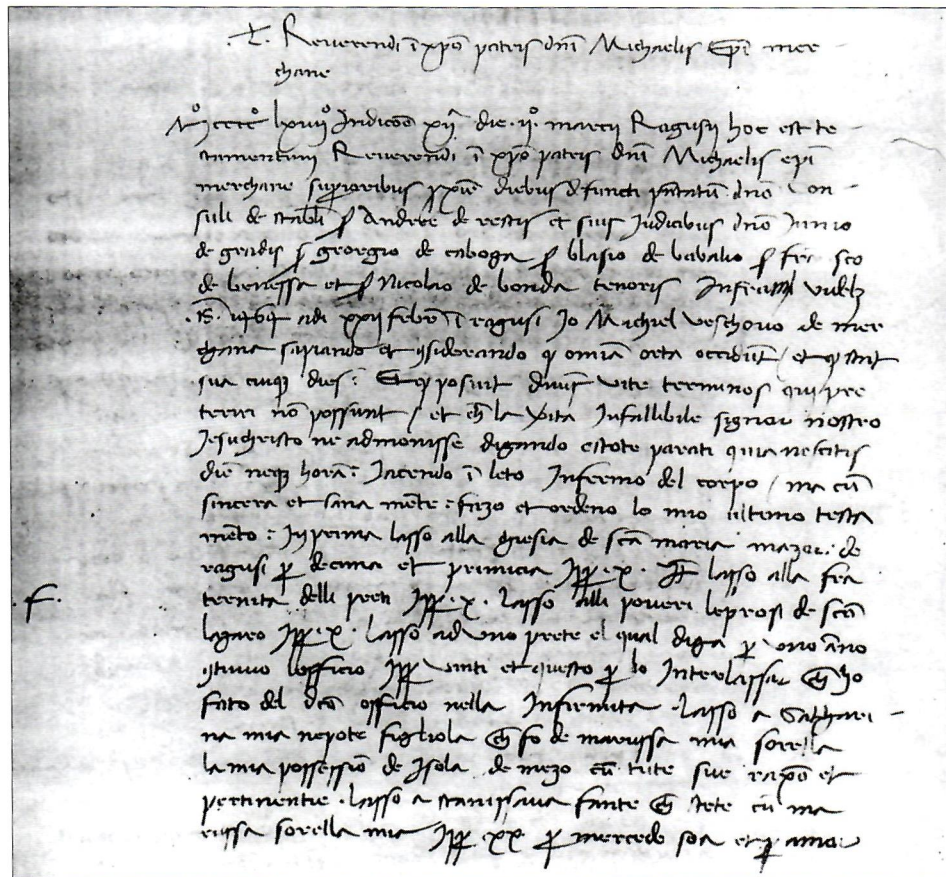 .T. Reverendi i xpo patris dni Michaelis Epi mer
chane
Mcccco lxiiiio Indicõe xii die .iio. marcii Ragusii hoc est te
stamentum Reverendi i xpo patris dni Michaelis epi
merchane superioribus diebus defuncti dno Con
suli de Andree de restis et suis Judicibus dno Junio
de georgio de caboga blasio de babalio
de benessa et Nicolao de bonda tenoris Infra
adi xxii febr i ragusi Jo Michiel veschovo de mer
chana sapiando et considerando q omia orta occidunt / et q stat
sua cuiq dies : Et q posuit vite terminos qui pre
teriri nõ possunt / et la vita Infallibile signor nostro
Jesuchristo ne admonisse digando estote parati quia nescitis
diẽ neq horã : Jacendo i leto Infermo del corpo / ma cũ
sincera et sana mẽte : fazo et ordeno lo mio ultimo testa
mẽto : Inprima lasso alla giesia de scã maria mazor de
ragusi p decima et primicia ipp x . Itẽ lasso alla fra
.f. ternita delli preti ipp x . lasso alli poveri leprosi de scõ
lazaro ipp x . lasso ad uno prete el qual diga p uno ãno
cõtinuo lofficio ipp vinti et questo p lo Interlassar
fato del dcõ officio nella Infirmita . lasso a Catharı
na mia nepote figliola fo de marussa mia sorella
la mia possessiõ de Isola de mezo cũ tute sue raxõ et
pertinentie . lasso a stanissava fante stete cũ ma
russa sorella mia ipp xx p mercede soa et p amor